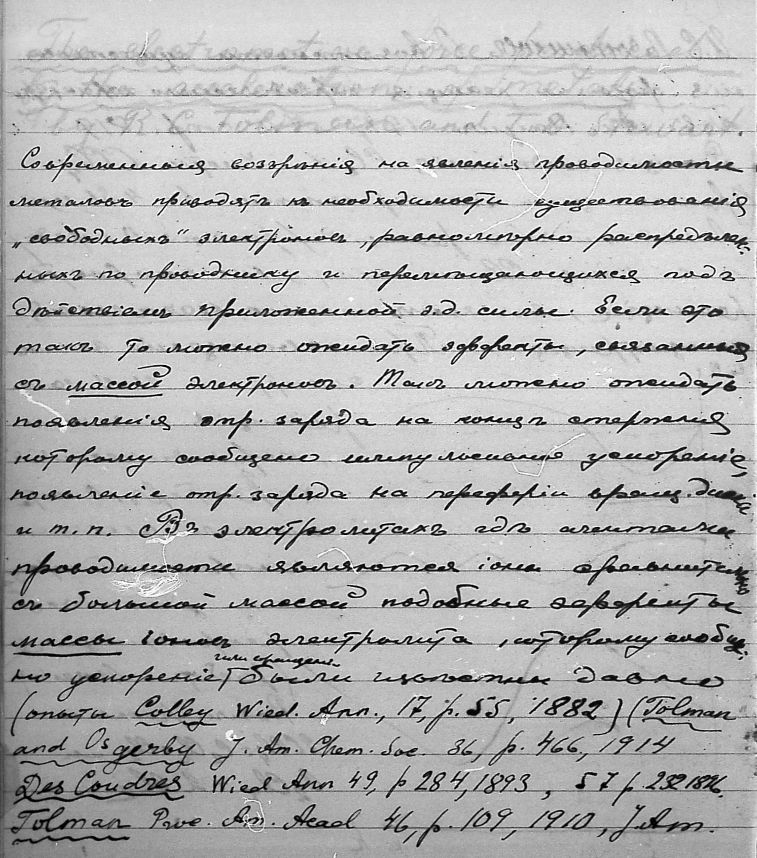 Современныя воззрѣнія на явленія проводимости
металловъ приводятъ къ необходимости существованія
„свободныхъ“ электроновъ, равномѣрно распредѣлен-
ныхъ по проводнику и перемѣщающихся подъ
дѣйствіемъ приложенной э.д. силы. Если это
такъ то можно ожидать эффекты, связанные
съ массой электроновъ. Такъ можно ожидать
появленія отр. заряда на концѣ стержня
которому сообщено импульсивное ускореніе,
появленіе отр. заряда на переферіи вращ. диска
и т.п. Въ электролитахъ гдѣ агентами
проводимости являются іоны сравнительно
съ большой массой подобные эффекты
массы іоновъ электролита, которому сообще-
но ускореніе или вращеніе были изучены давно
(опыты Colley Wied. Ann., 17, p. 55, 1882) (Tolman
and Osgerby J. Am. Chem. Soc. 36, p. 466, 1914
Des Coudres Wied Ann 49, p 284, 1893, 57 p. 232 1896.
Tolman Proc. Am. Acad 46, p. 109, 1910, J. Am.